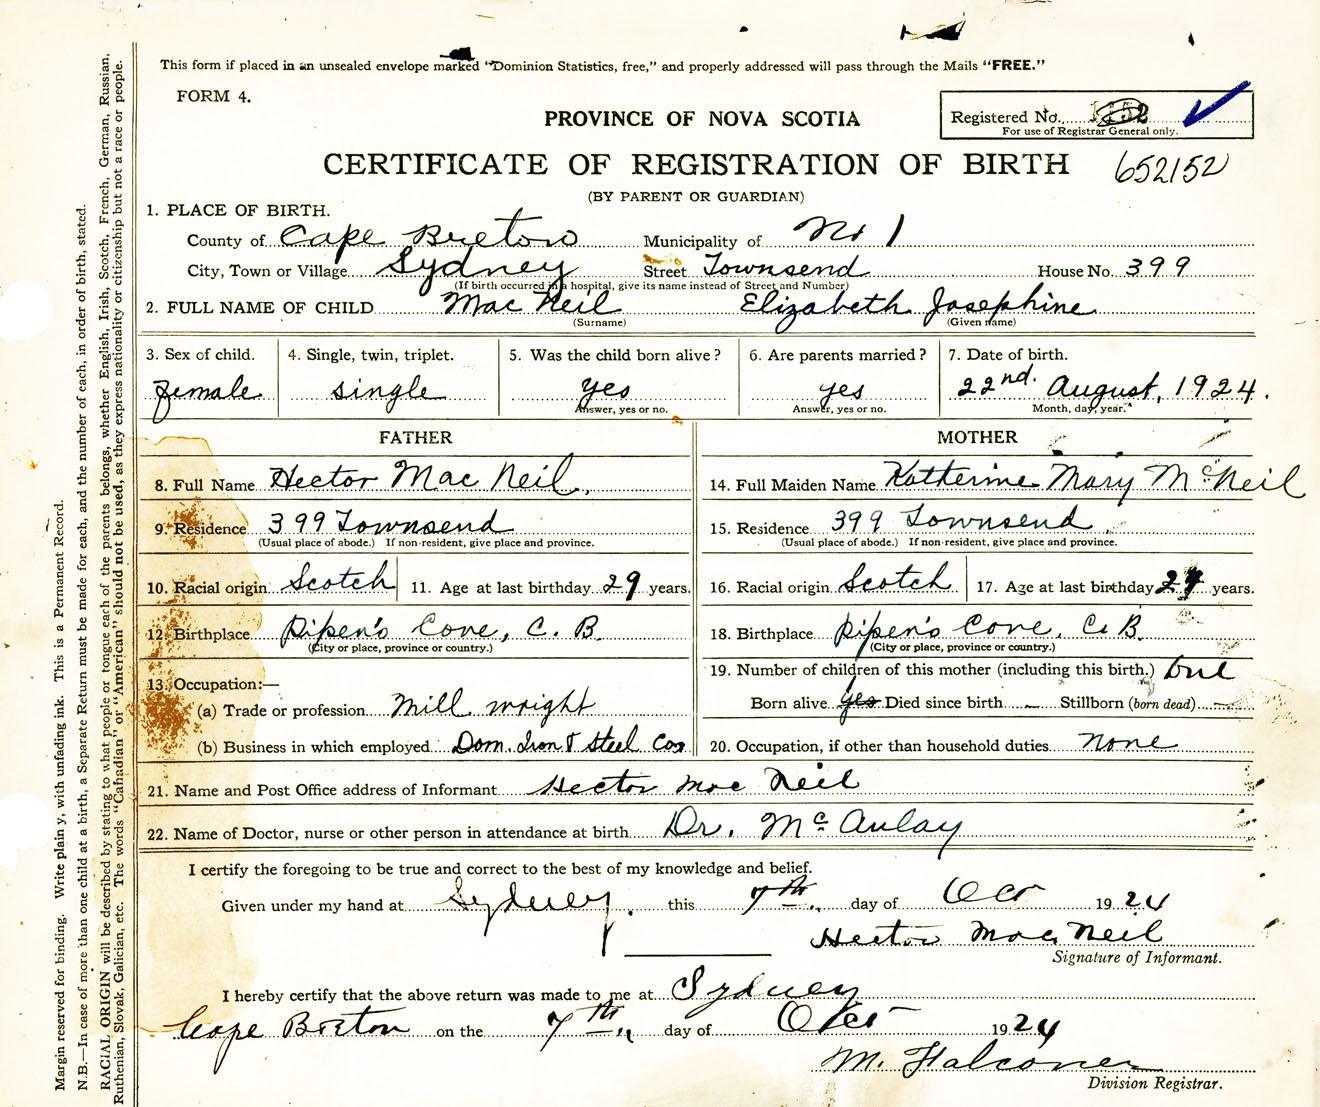 This form if placed in an unsealed envelope marked "Dominion Statistics, free," and properly addressed will pass through the Mails "FREE."
FORM 4.
PROVINCE OF NOVA SCOTIA
Registered No. 1152
For use of Registrar General only.
CERTIFICATE OF REGISTRATION OF BIRTH 652152
(BY PARENT OR GUARDIAN)
1. PLACE OF BIRTH.
County of Cape Breton Municipality of No 1
City, Town or Village Sydney Street Townsend House No. 399
(If birth occurred in a hospital, give its name instead of Street and Number)
2. FULL NAME OF CHILD Mac Neil Elizabeth Josephine
(Surname) (Given name)
3. Sex of child. 4. Single, twin, triplet. 5. Was the child born alive? 6. Are parents married? 7. Date of birth.
female single yes yes 22nd. August, 1924.
Answer, yes or no. Answer, yes or no. Month, day, year.
FATHER MOTHER
8. Full Name Hector Mac Neil. 14. Full Maiden Name Katherine Mary McNeil
9. Residence 399 Townsend 15. Residence 399 Townsend
(Usual place of abode.) If non-resident, give place and province. (Usual place of abode.) If non-resident, give place and province.
10. Racial origin Scotch 11. Age at last birthday 29 years. 16. Racial origin Scotch 17. Age at last birthday years.
12. Birthplace Pipen's Cove, C. B. 18. Birthplace Pipen's Cove, C. B.
(City or place, province or country.) (City or place, province or country.)
13. Occupation:— 19. Number of children of this mother (including this birth.) one
(a) Trade or profession Mill wright Born alive yes Died since birth — Stillborn (born dead) —
(b) Business in which employed Dom. Iron & Steel Co. 20. Occupation, if other than household duties none
21. Name and Post Office address of Informant Hector Mac Neil
22. Name of Doctor, nurse or other person in attendance at birth Dr. McAulay
I certify the foregoing to be true and correct to the best of my knowledge and belief.
Given under my hand at Sydney, this 7th day of Oct 1924
Hector Mac Neil
Signature of Informant.
I hereby certify that the above return was made to me at Sydney
Cape Breton on the 7th day of Oct 1924
M. Falconer
Division Registrar.
Margin reserved for binding. Write plain y, with unfading ink. This is a Permanent Record.
N.B.—In case of more than one child at a birth, a Separate Return must be made for each, and the number of each, in order of birth, stated.
RACIAL ORIGIN will be described by stating to what people or tongue each of the parents belongs, whether English, Irish, Scotch, French, German, Russian,
Ruthenian, Slovak, Galician, etc. The words "Canadian" or "American" should not be used, as they express nationality or citizenship but not a race or people.